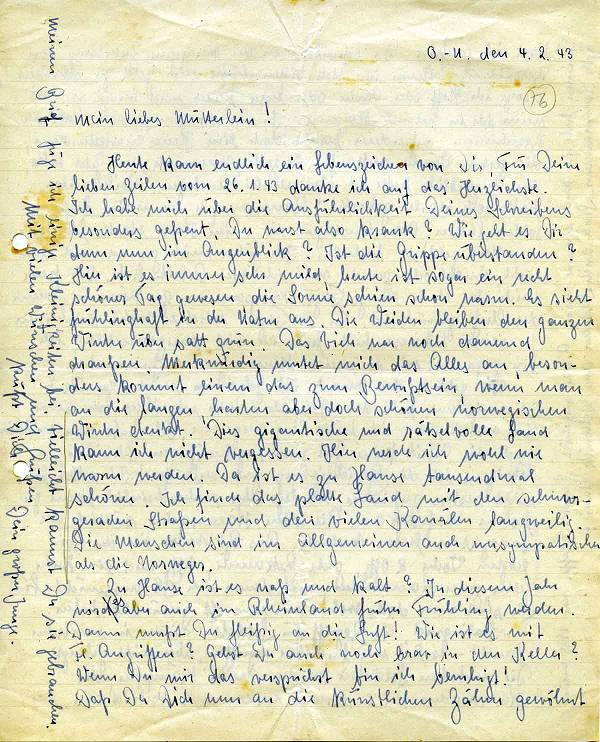 O.-U. den 4. 2. 43
76
Mein liebes Mütterlein!
Heute kam endlich ein Lebenszeichen von Dir. Für Deine
lieben Zeilen vom 26.1.43 danke ich auf das Herzlichste.
Ich habe mich über die Ausführlichkeit Deines Schreibens
besonders gefreut. Du warst also krank? Wie geht es Dir
denn nun im Augenblick? Ist die Grippe überstanden?
Hier ist es immer sehr mild, heute ist sogar ein recht
schöner Tag gewesen die Sonne schien schon warm. Es sieht
frühlinghaft in der Natur aus. Die Weiden bleiben den ganzen
Winter über satt grün. Das Vieh war noch dauernd
draußen. Merkwürdig mutet mich das Alles an, beson-
ders kommt einem das zum Bewußtsein wenn man
an die langen harten aber doch schönen norwegischen
Winter denkt. Dies gigantische und rätselvolle Land
kann ich nicht vergessen. Hier werde ich wohl nie
warm werden. Da ist es zu Hause tausendmal
schöner. Ich finde das platte Land mit den schnur-
geraden Straßen und den vielen Kanälen langweilig.
Die Menschen sind im Allgemeinen auch unsympatischer
als die Norweger.
Zu Hause ist es naß und kalt? In diesem Jahr
wird es aber auch im Rheinland früher Frühling werden.
Dann mußt Du fleißig an die Luft! Wie ist es mit
Fl. Angriffen? Gehst Du auch noch brav in den Keller?
Wenn Du mir das versprichst bin ich beruhigt!
Daß Du Dich nun an die künstlichen Zähne gewöhnt
Meinem Brief füge ich einige Kleinigkeiten bei, vielleicht kannst Du sie gebrauchen.
Mit vielen Wünschen und Grüßen
küßt Dich
Dein großer Junge.